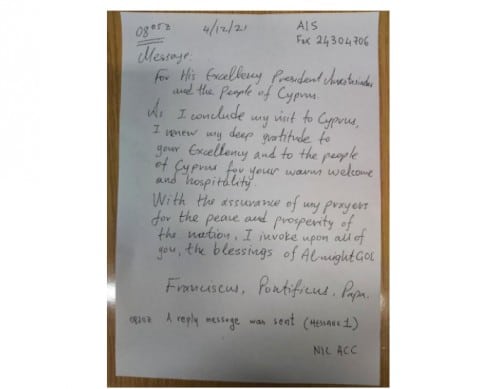 08⁰⁵z 4/12/21 A/S
Fax 24304706
Message:
For His Excellency President Anastasiades
and the People of Cyprus.
As I conclude my visit to Cyprus,
I renew my deep gratitude to
your Excellency and to the people
of Cyprus for your warm welcome
and hospitality.
With the assurance of my prayers
for the peace and prosperity of
the nation, I invoke upon all of
you, the blessings of Al-might GOD
Franciscus, Pontificus, Papa.
0825z A reply message was sent (MESSAGE 1)
NIC ACC